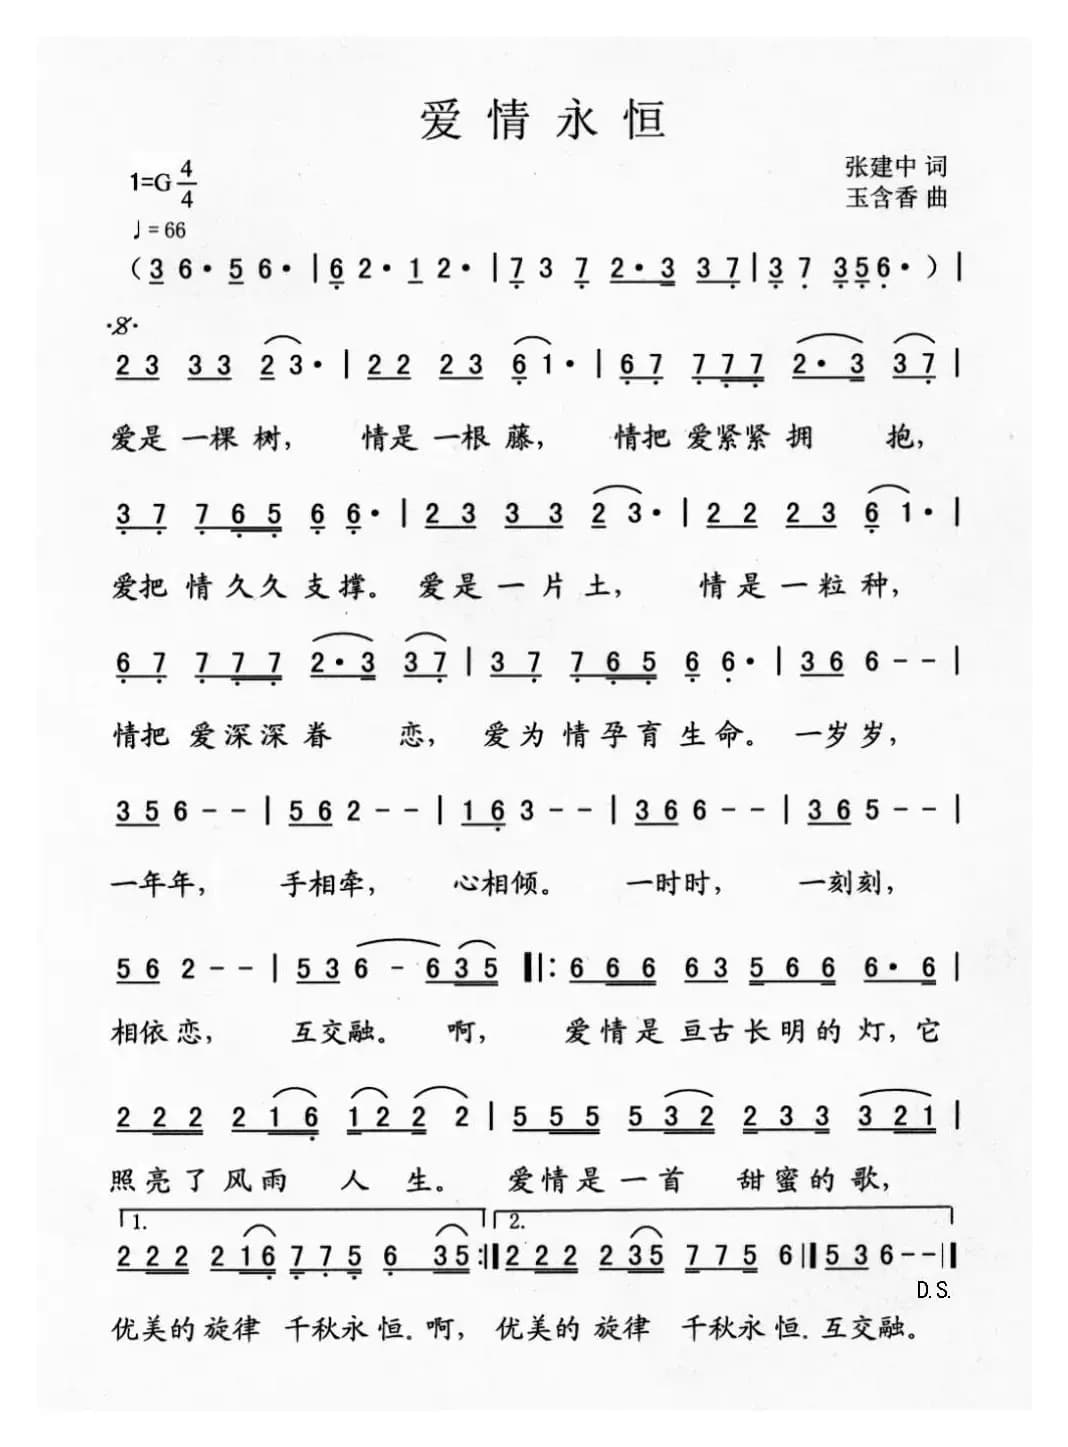 爱情永恒
1=G 4/4
张建中 词
玉含香 曲
♩=66
（3 6· 5 6· | 6 2· 1 2· | 7 3 7 2·3 37 | 3 7 356· ）|
23 33 23· | 22 23 61· | 67 777 2·3 37 |
爱是 一棵 树， 情是 一根 藤， 情把 爱紧紧 拥 抱，
37 765 6 6· | 23 33 23· | 22 23 61· |
爱把 情久久 支撑。 爱是一片土， 情是一粒种，
67 777 2·3 37 | 37 765 6 6· | 36 6 - - |
情把 爱深深眷 恋， 爱为情孕育生命。 一岁岁，
35 6 - - | 56 2 - - | 16 3 - - | 36 6 - - | 36 5 - - |
一年年， 手相牵， 心相倾。 一时时， 一刻刻，
56 2 - - | 53 6 - 635 ‖: 666 63 566 6·6 |
相依恋， 互交融。 啊， 爱情是 亘古长明的灯，它
222 216 122 2 | 555 532 233 321 |
照亮了风雨 人 生。 爱情是一首 甜蜜的歌，
1. 2.
222 216 775 6 35 :‖ 222 235 775 6 ‖ 53 6 - - ‖
D.S.
优美的 旋律 千秋永恒.啊， 优美的 旋律 千秋永恒.互交融。